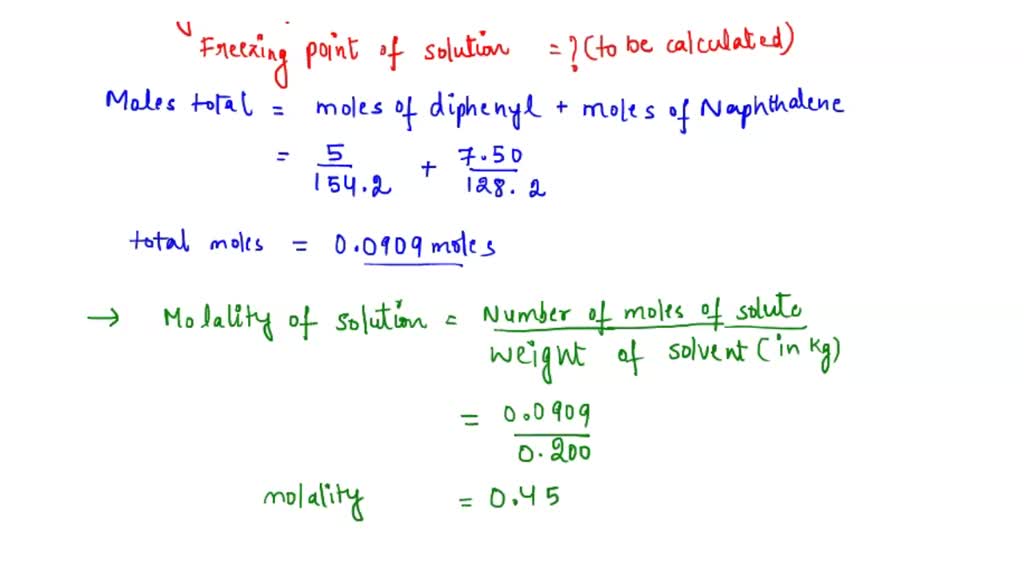 Freezing point of solution = ? (to be calculated)
Moles total = moles of diphenyl + moles of Naphthalene
= 5/154.2 + 7.50/128.2
total moles = 0.0909 moles
→ Molality of solution = Number of moles of solute / weight of solvent (in kg)
= 0.0909/0.200
molality = 0.45